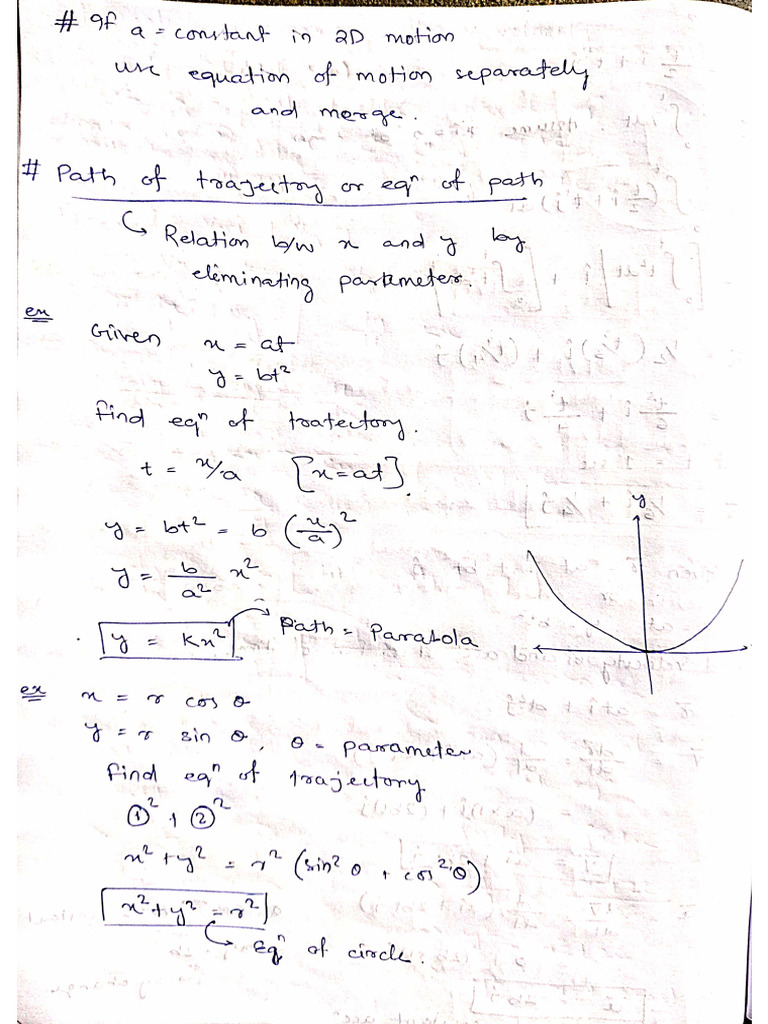 # If a = constant in 2D motion
use equation of motion separately
and merge.
# Path of trajectory or eqⁿ of path
↳ Relation b/w x and y by
eliminating parameter.
ex
Given x = at
y = bt²
find eqⁿ of tratectory.
t = x/a [x=at].
y = bt² = b (x/a)²
y = b/a² x²
y = Kx² → Path = Parabola
y
ex x = r cos θ
y = r sin θ, θ = parameter
find eqⁿ of trajectory
①² + ②²
x² + y² = r² (sin² θ + cos² θ)
x² + y² = r²
↳ Eqⁿ of circle.